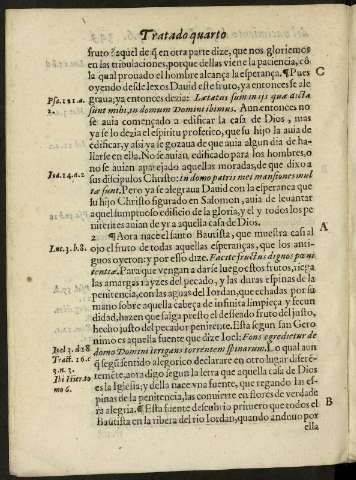 Tratado quarto
fruto? aquel de q̃ en otra parte dize, que nos gloriemos
en las tribulaciones, porque dellas viene la paciencia, cõ
la qual prouado el hombre alcança la esperança. ¶ Pues
C
oyendo desde lexos Dauid este fruto, ya entonces se ale
Psa. 121. a.
graua; ya entonces dezia: Lætatus sum in ijs quæ dicta
sunt mihi, in domum Domini ibimus. Aun entonces no
se auia començado a edificar la casa de Dios, mas
ya se lo dezia el espiritu profetico, que su hijo la auia de
edificar, y assi ya se gozaua de que auia algun dia de ha-
llarse en ella. No se auian edificado para los hombres, o
no se auian aparejado aquellas moradas, de que dixo a
sus discipulos Christo: In domo patris mei mansiones mul
tæ sunt. Pero ya se alegraua Dauid con la esperança que
su hijo Christo figurado en Salomon, auia de leuantar
aquel sumptuoso edificio de la gloria, y el y todos los pe
nitentes auian de yr a aquella casa de Dios.
A
2. ¶ Aora nace el santo Bautista, que muestra casi al
Luc. 3. b. 8.
ojo el fruto de todas aquellas esperanças, que los anti-
guos oyeron: y por esso dize. Facite fructus dignos pœni
tentiæ. Para que vengan a darse luego estos frutos, riega
las amargas rayzes del pecado, y las duras espinas de la
penitencia, con las aguas del Iordan, que echadas por su
mano sobre aquella cabeça de infinita limpieza y fecun
didad, hazen que salga presto el desseado fruto del justo,
hecho justo del pecador penitente. Esta segun san Gero
nimo es aquella fuente que dize Ioel: Fons egredietur de
Ioel 3. d. 18
domo Domini irrigans torrentem spinarum. Lo qual aun
q̃ segũ sentido alegorico declararè en otro lugar diferẽ-
temẽte, aora digo segun la letra que aquella casa de Dios
es la Iglesia; y della nace vna fuente, que regando las es-
pinas de la penitencia, las conuierte en flores de verdade
ra alegria. ¶ Esta fuente descubrio primero que todos el
B
Bautista en la ribera del rio Iordan, quando anduuo por
ella